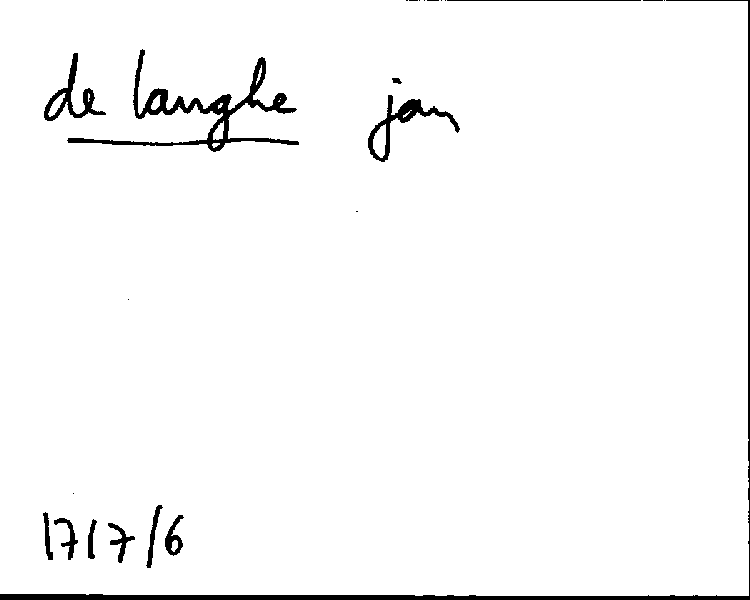 de langhe jan
1717/6